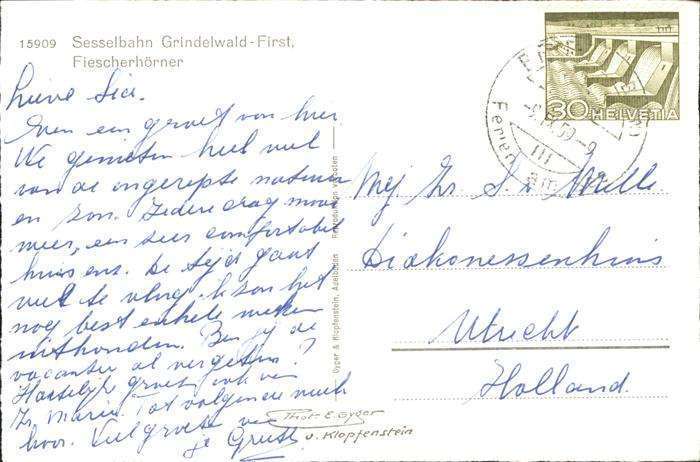 15909 Sesselbahn Grindelwald-First,
Fiescherhörner
Lieve Sia.
Even een groet van hier.
We genieten heel veel
van de ongerepte natuur
en zon. Iedere dag mooi
weer, een zeer comfortabel
huis enz. De tijd gaat
veel te vlug. Ik zou het
nog best enkele weken
uithouden. Ben jij de
vacantie al vergeten?
Hartelijk groeten ook van
Zr. Marie. Tot volgende week
hoor. Veel groeten van
je Greet
Gyger & Klopfenstein, Adelboden Reproduktion verboten
Phot. E. Gyger
u. Klopfenstein
30 HELVETIA
Ferien
III
59
Mej. Zr. S. D.
Diakonessenhuis
Utrecht
Holland.